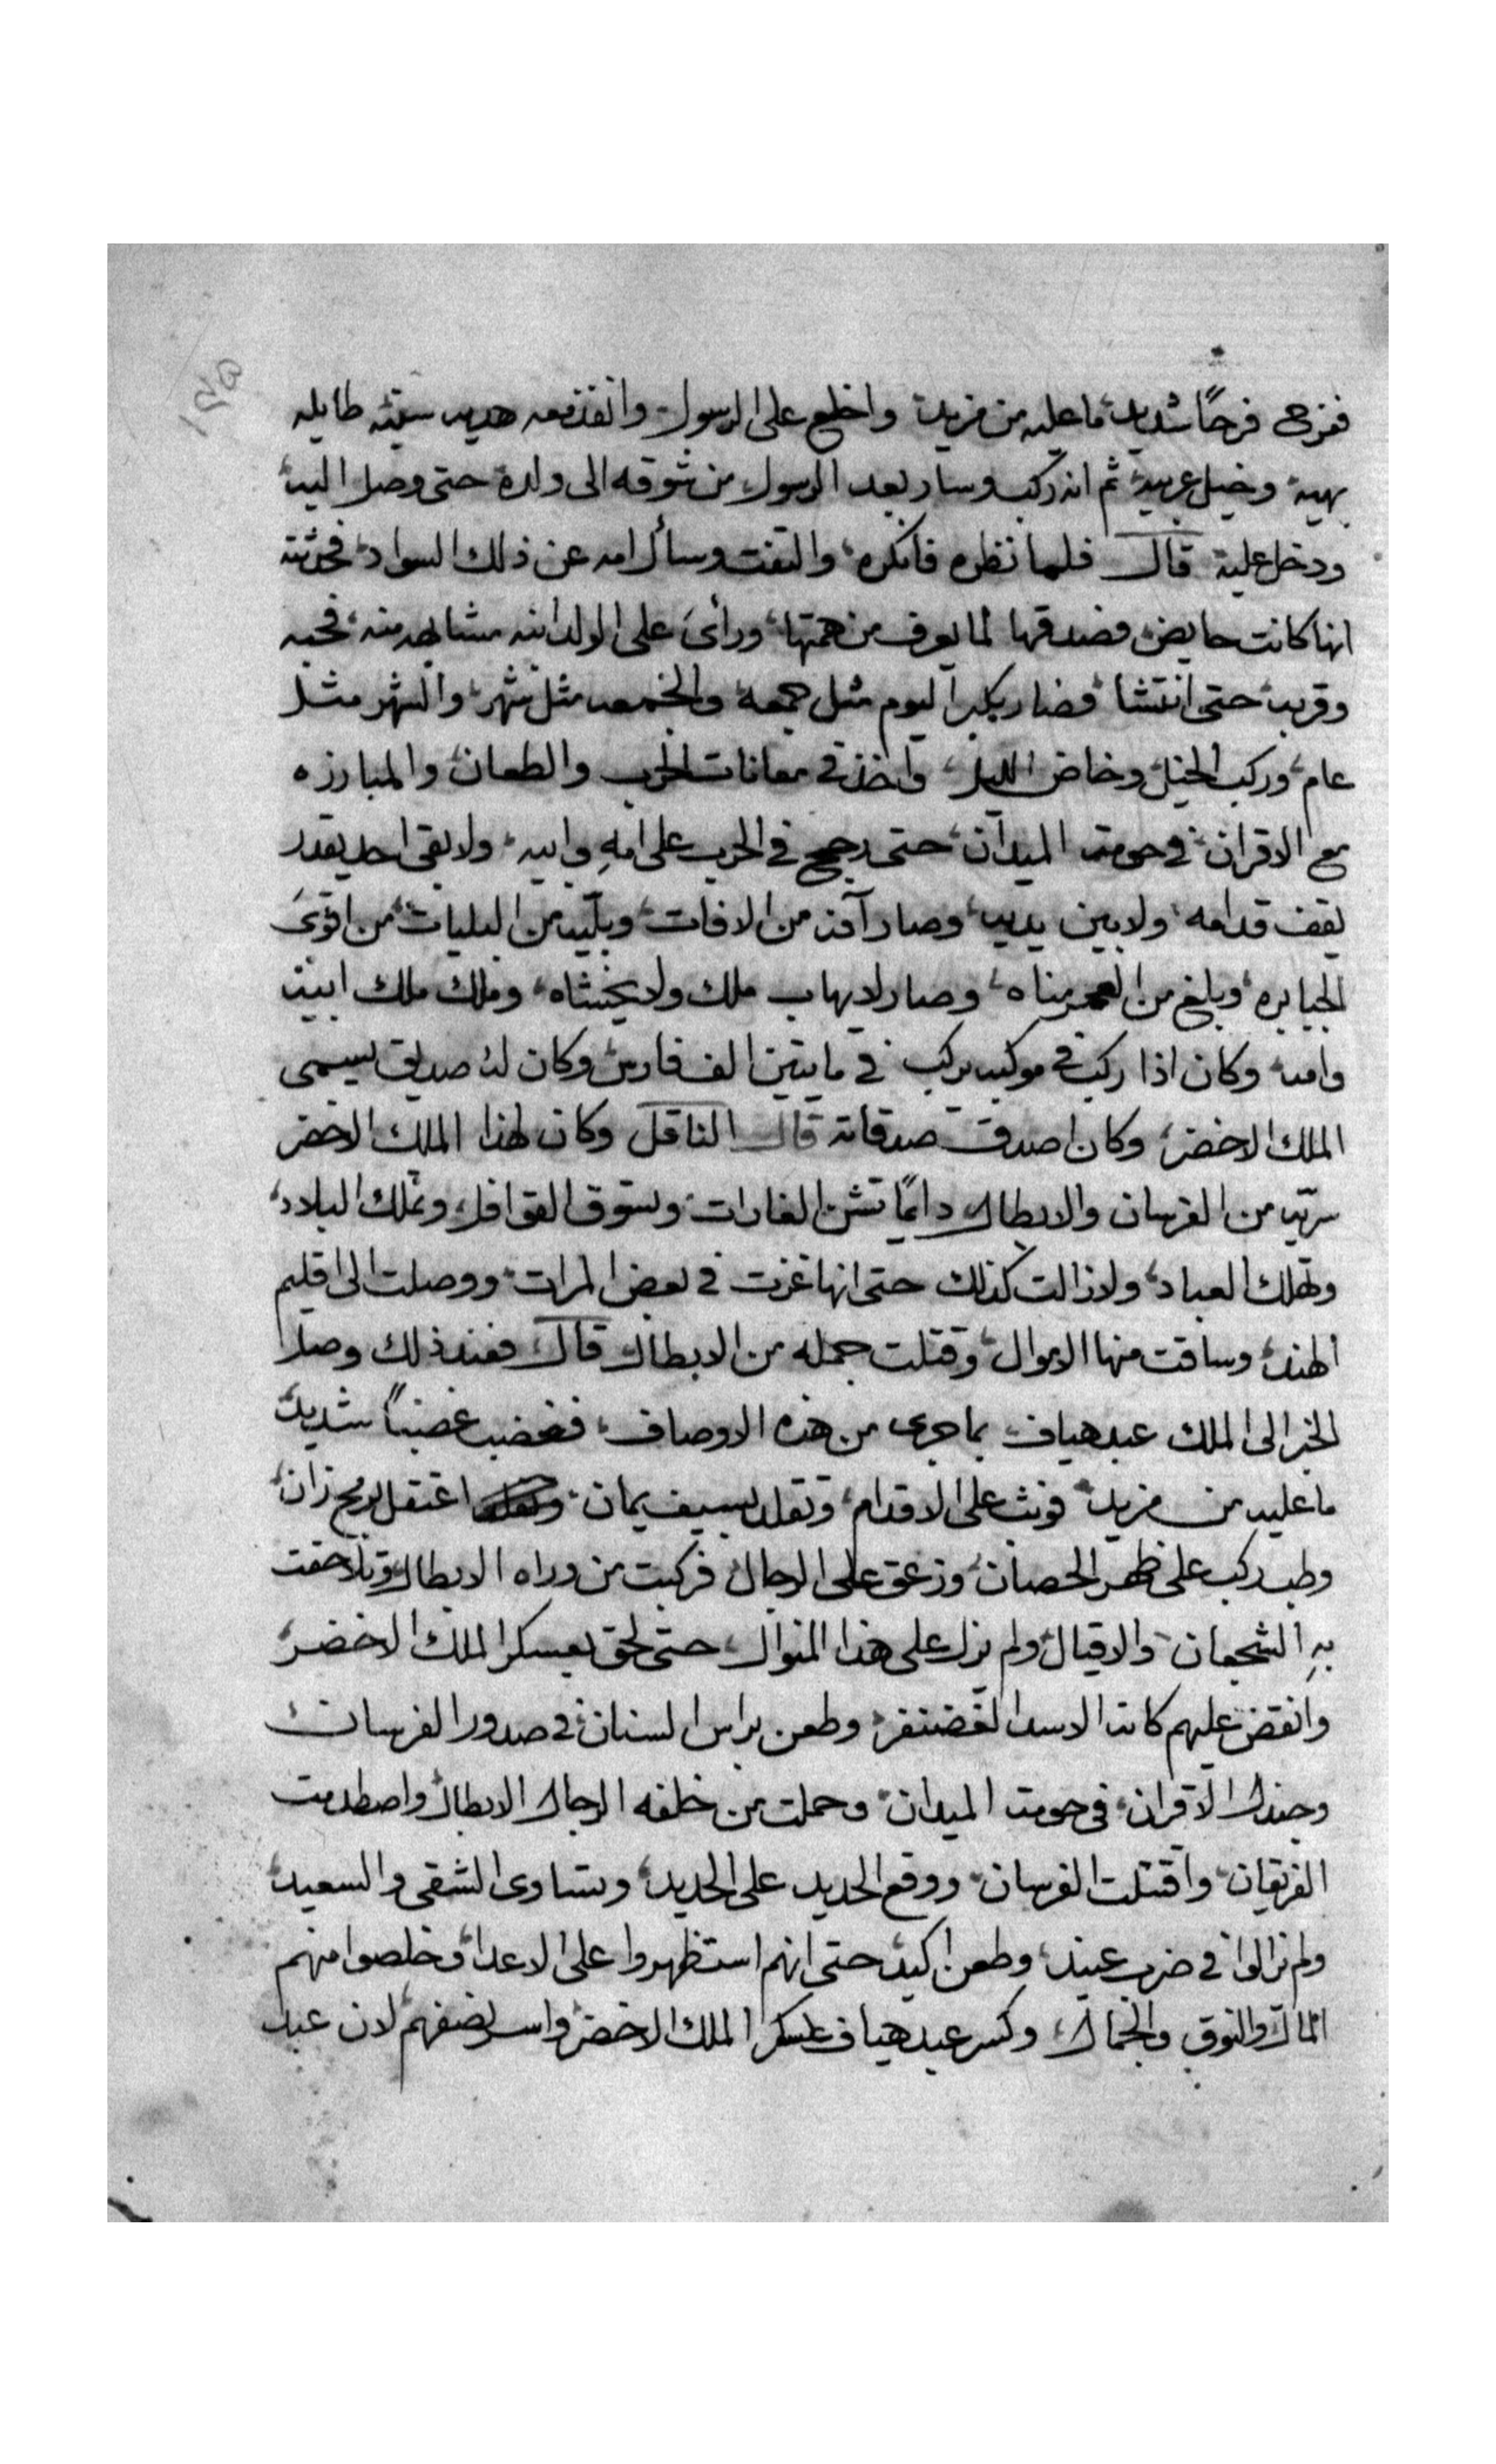 ففرح فرحًا شديد ما عليه من مزيد واخلع على الرسول وانفذ معه هديه سنيه طايله
بهيه وخيل عربيه ثم انه ركب وسار بعد الرسول من شوقه الى ولده حتى وصل اليه
ودخل عليه قال فلما نظره فانكره والتفت وسأل امه عن ذلك السواد فحدثته
انها كانت حايض فصدقها لما يعرف من همتها ورأى على الولد انه مشابهه منه فحبه
وقربه حتى انتشا فصار يكبر اليوم مثل جمعه والجمعه مثل شهر والشهر مثل
عام وركب الخيل وخاض الليل واخذ في معانات الحرب والطعان والمبارزه
مع الاقران في حومت الميدان حتى رجح في الحرب على امهِ وابيه ولا بقى احد يقدر
يقف قدامه ولا بين يديه وصار آفه من الافات وبليّه من البليات من اقوى
الجبابره وبلغ من العمر مناه وصار لا يهاب ملك ولا يخشاه وملك ملك ابيه
وامه وكان اذا ركب في موكبه يركب في مايتين الف فارس وكان له صديق يسمى
الملك الاخضر وكان اصدق صدقاته قال الناقل وكان لهذا الملك الاخضر
سريّه من الفرسان والابطال دايمًا تشن الغارات وتسوق القوافل وتملك البلاد
وتهلك العباد ولا زالت كذلك حتى انها غزت في بعض المرات ووصلت الى اقليم
الهند وساقت منها الاموال وقتلت جمله من الابطال قال فعند ذلك وصل
الخبر الى الملك عبد هياف بما جرى من هذه الاوصاف فغضب غضباً شديد
ما عليه من مزيد فوثب على الاقدام وتقلد بسيف يمان اعتقل برمح زان
وطب ركب على ظهر الحصان وزعق على الرجال فركبت من وراه الابطال وتلاحقت
بهِ الشجعان والاقيال ولم يزل على هذا المنوال حتى لحق بعسكر الملك الاخضر
وانقض عليهم كانه الاسد الغضنفر وطعن براس السنان في صدور الفرسان
وجندل الاقران في حومت الميدان وحملت من خلفه الرجال الابطال واصطدمت
الفريقان واقتتلت الفرسان ووقع الحديد على الحديد وتساوى الشقى والسعيد
ولم زالوا في ضرب عنيد وطعن اكيد حتى انهم استظهروا على الاعدا وخلصوا منهم
المال والنوق والجمال وكسر عبد هياف عسكر الملك الاخضر واسر نصفهم لان عبد